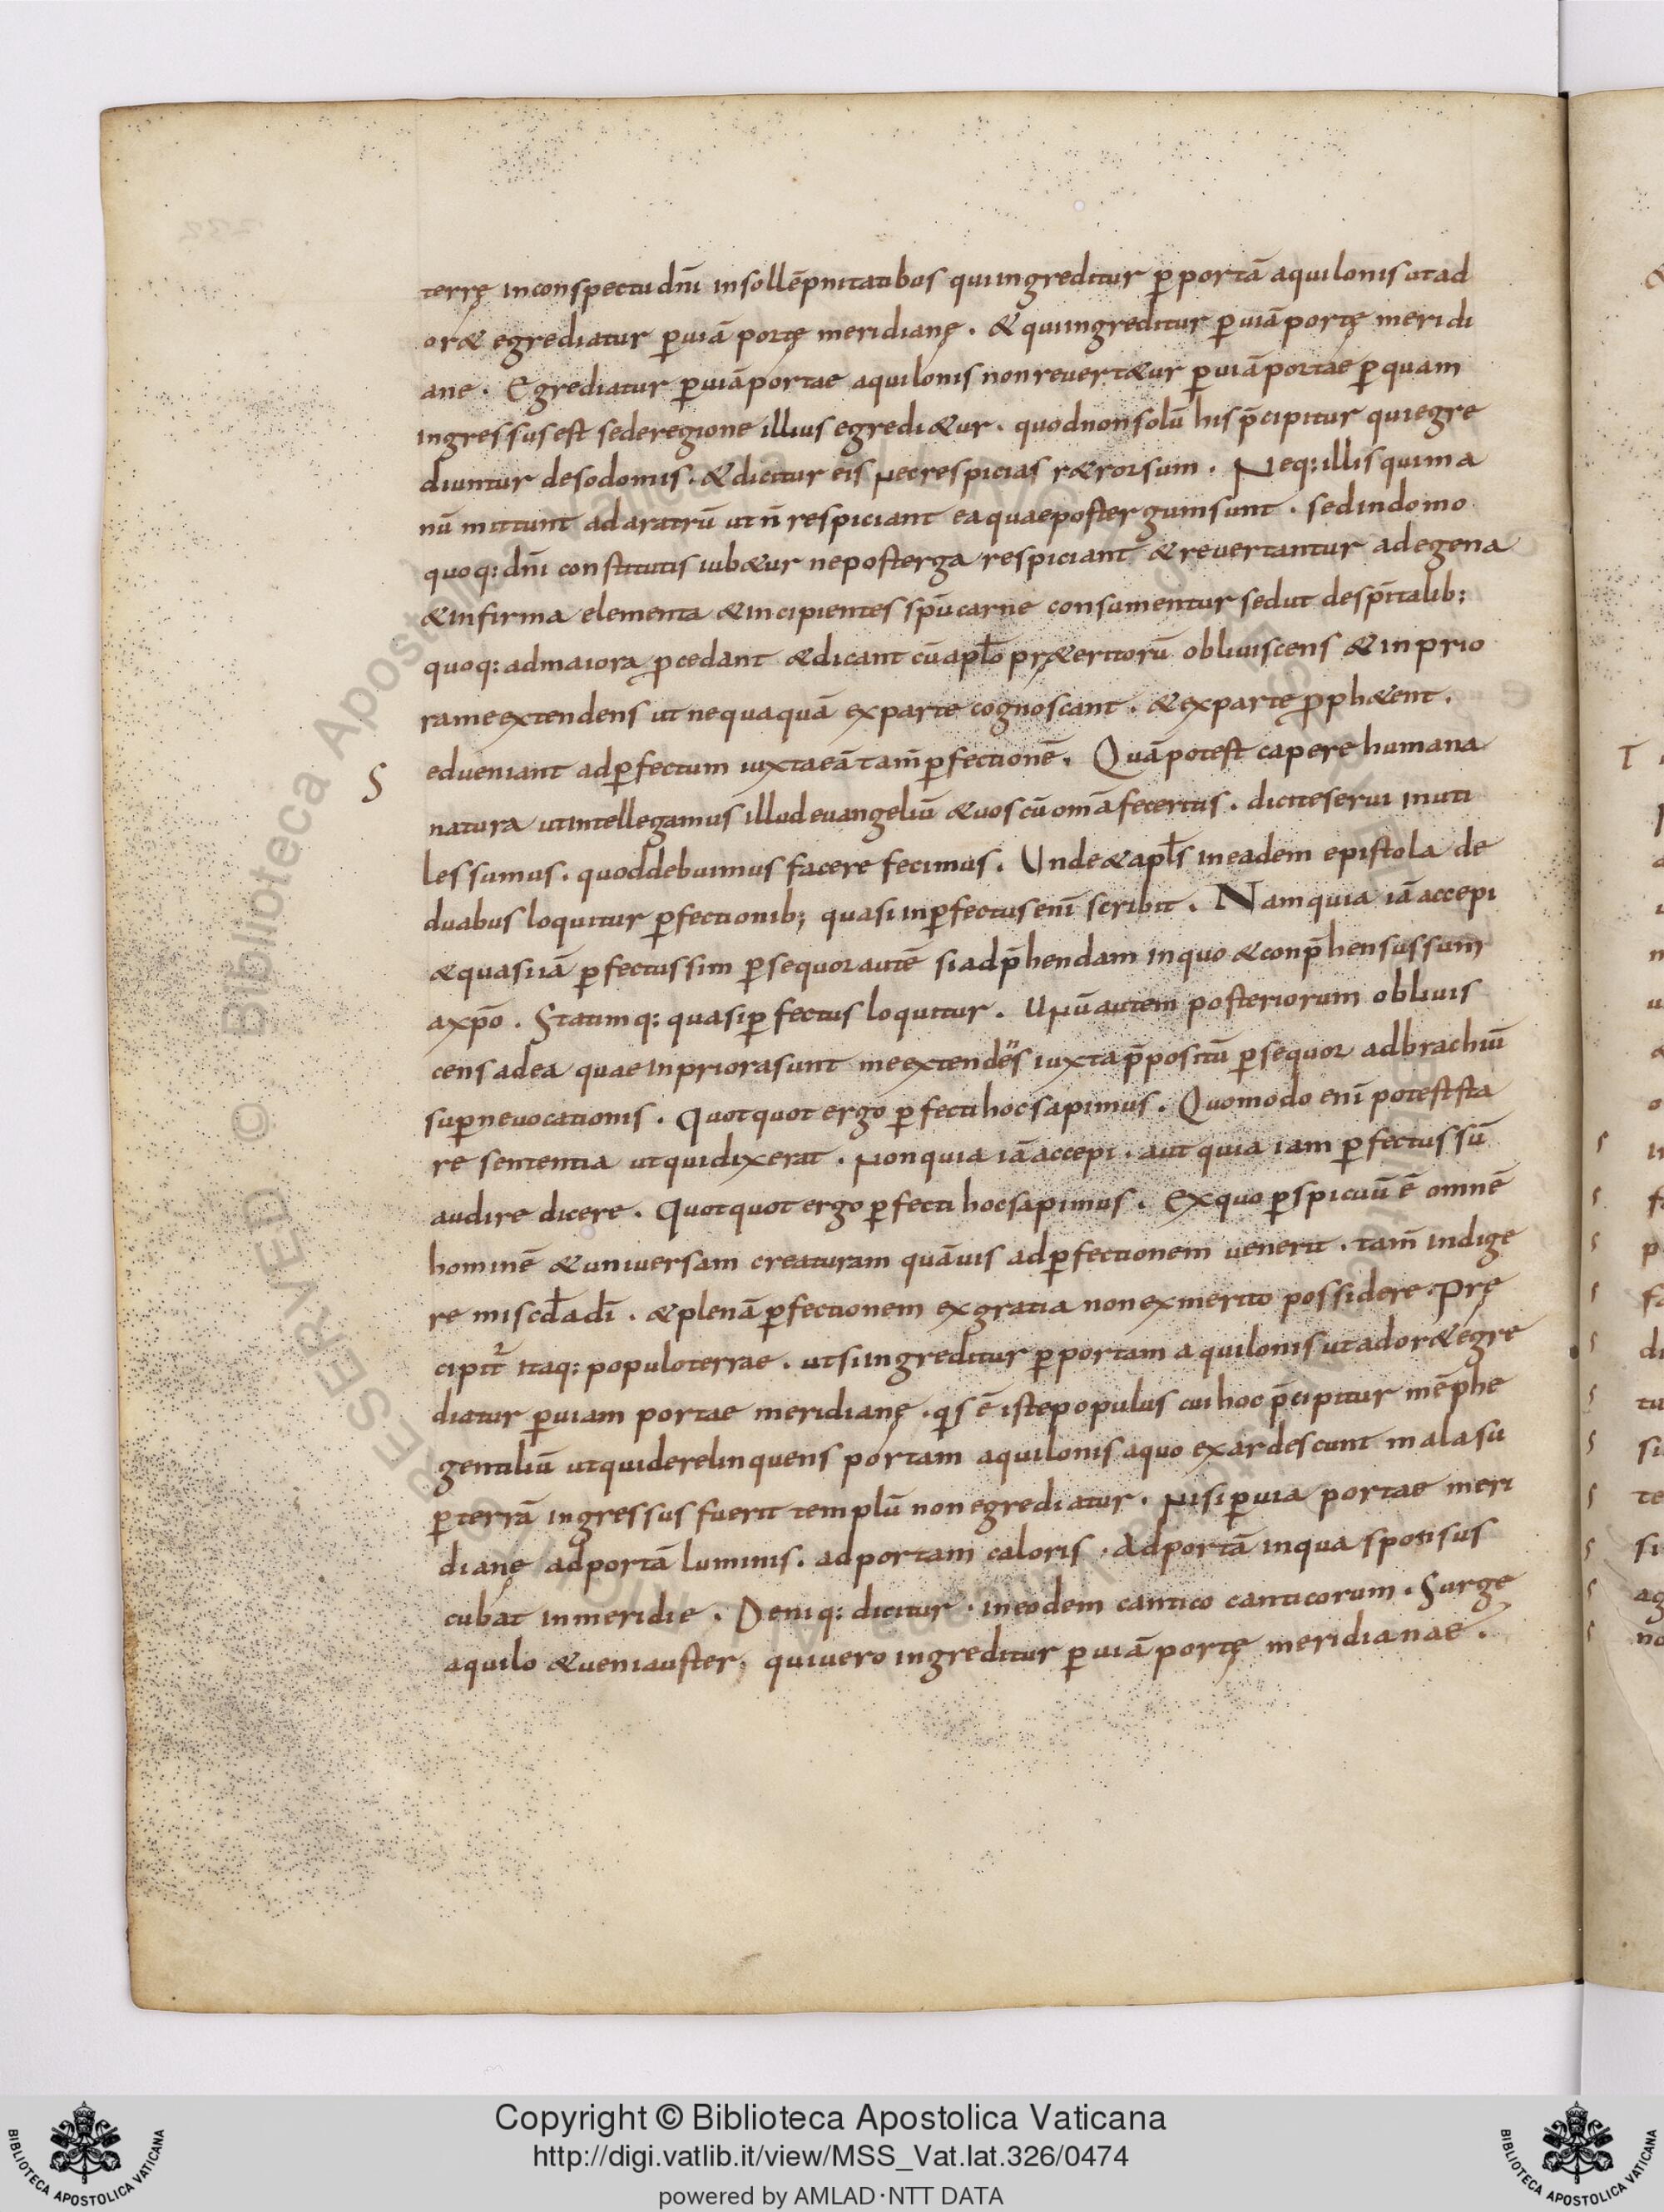 terrę inconspectu dñi insollēpnitatibus qui ingreditur ꝑ portā aquilonis utad
or& egrediatur ꝑ uiā portę meridianę. & qui ingreditur ꝑ uiā portę meridi
ane. Egrediatur ꝑ uiā portae aquilonis non reuert&ur ꝑ uiā portae ꝑ quam
ingressus est sed eregione illius egredi&ur. quod non solū his p̄cipitur qui egre
diuntur de sodomis. & dicitur eis Nec respicias r&rorsum. Neq: illis qui ma
nū mittunt ad aratrū ut n̄ respiciant ea quae post ergum sunt. sed in domo
quoq: dñi constitutis iub&ur ne post erga respiciant & reuertantur ad egena
& infirma elementa & incipientes sp̄u carne consumentur sed ut de sp̄italib;
quoq: ad maiora ꝓcedant & dicant cū apł̄o pr&eritorū obliuiscens & in prio
ra me extendens ut nequaquā ex parte cognoscant. & ex parte ꝓph&ent.
S ed ueniant ad ꝑfectum iuxta eā tam̄ ꝑfectionē. Quā potest capere humana
natura ut intellegamus illud euangeliū & uos cū omā feceritis. dicite serui inuti
les sumus. quod debuimus facere fecimus. Unde & apł̄s in eadem epistola de
duabus loquitur ꝑfectionib; quasi inꝑfectus enī scribit. Nam quia iā accepi
& quasi iā ꝑfectus sim ꝑsequor autē si adp̄hendam in quo & conp̄hensus sum
a xp̄o. Statimq: quasi ꝑfectus loquitur. Unū autem posteriorum obliuis
cens ad ea quae in priora sunt me extendēs iuxta p̄positū ꝑsequor ad brachiū
suꝑne uocationis. Quotquot ergo ꝑfecti hoc sapimus. Quomodo enī potest sta
re sententia ut qui dixerat. Non quia iā accepi. aut quia iam ꝑfectus sū
audire dicere. Quotquot ergo ꝑfecti hoc sapimus. Ex quo ꝑspicuū ē omnē
hominē & uniuersam creaturam quāuis ad ꝑfectionem uenerit. tam̄ indige
re misc̄d̄a dī. & plenā ꝑfectionem ex gratia non ex merito possidere. Prę
cipit᷑ itaq: populo terrae. ut si ingreditur ꝑ portam aquilonis ut ador& egre
diatur ꝑ uiam portae meridianę. q̄s ē iste populus cui hoc p̄cipitur mēphe
gentiliū ut qui derelinquens portam aquilonis a quo exardescunt mala su
ꝑ terrā ingressus fuerit templū non egrediatur. Nisi ꝑ uia portae meri
dianę ad portā luminis. ad portam caloris. Ad portā in qua sponsus
cubat in meridie. Deniq: dicitur. in eodem cantico canticorum. Surge
aquilo & ueni auster, qui uero ingreditur ꝑ uiā portę meridianae.
Copyright © Biblioteca Apostolica Vaticana
http://digi.vatlib.it/view/MSS_Vat.lat.326/0474
powered by AMLAD·NTT DATA
BIBLIOTECA APOSTOLICA VATICANA
BIBLIOTECA APOSTOLICA VATICANA